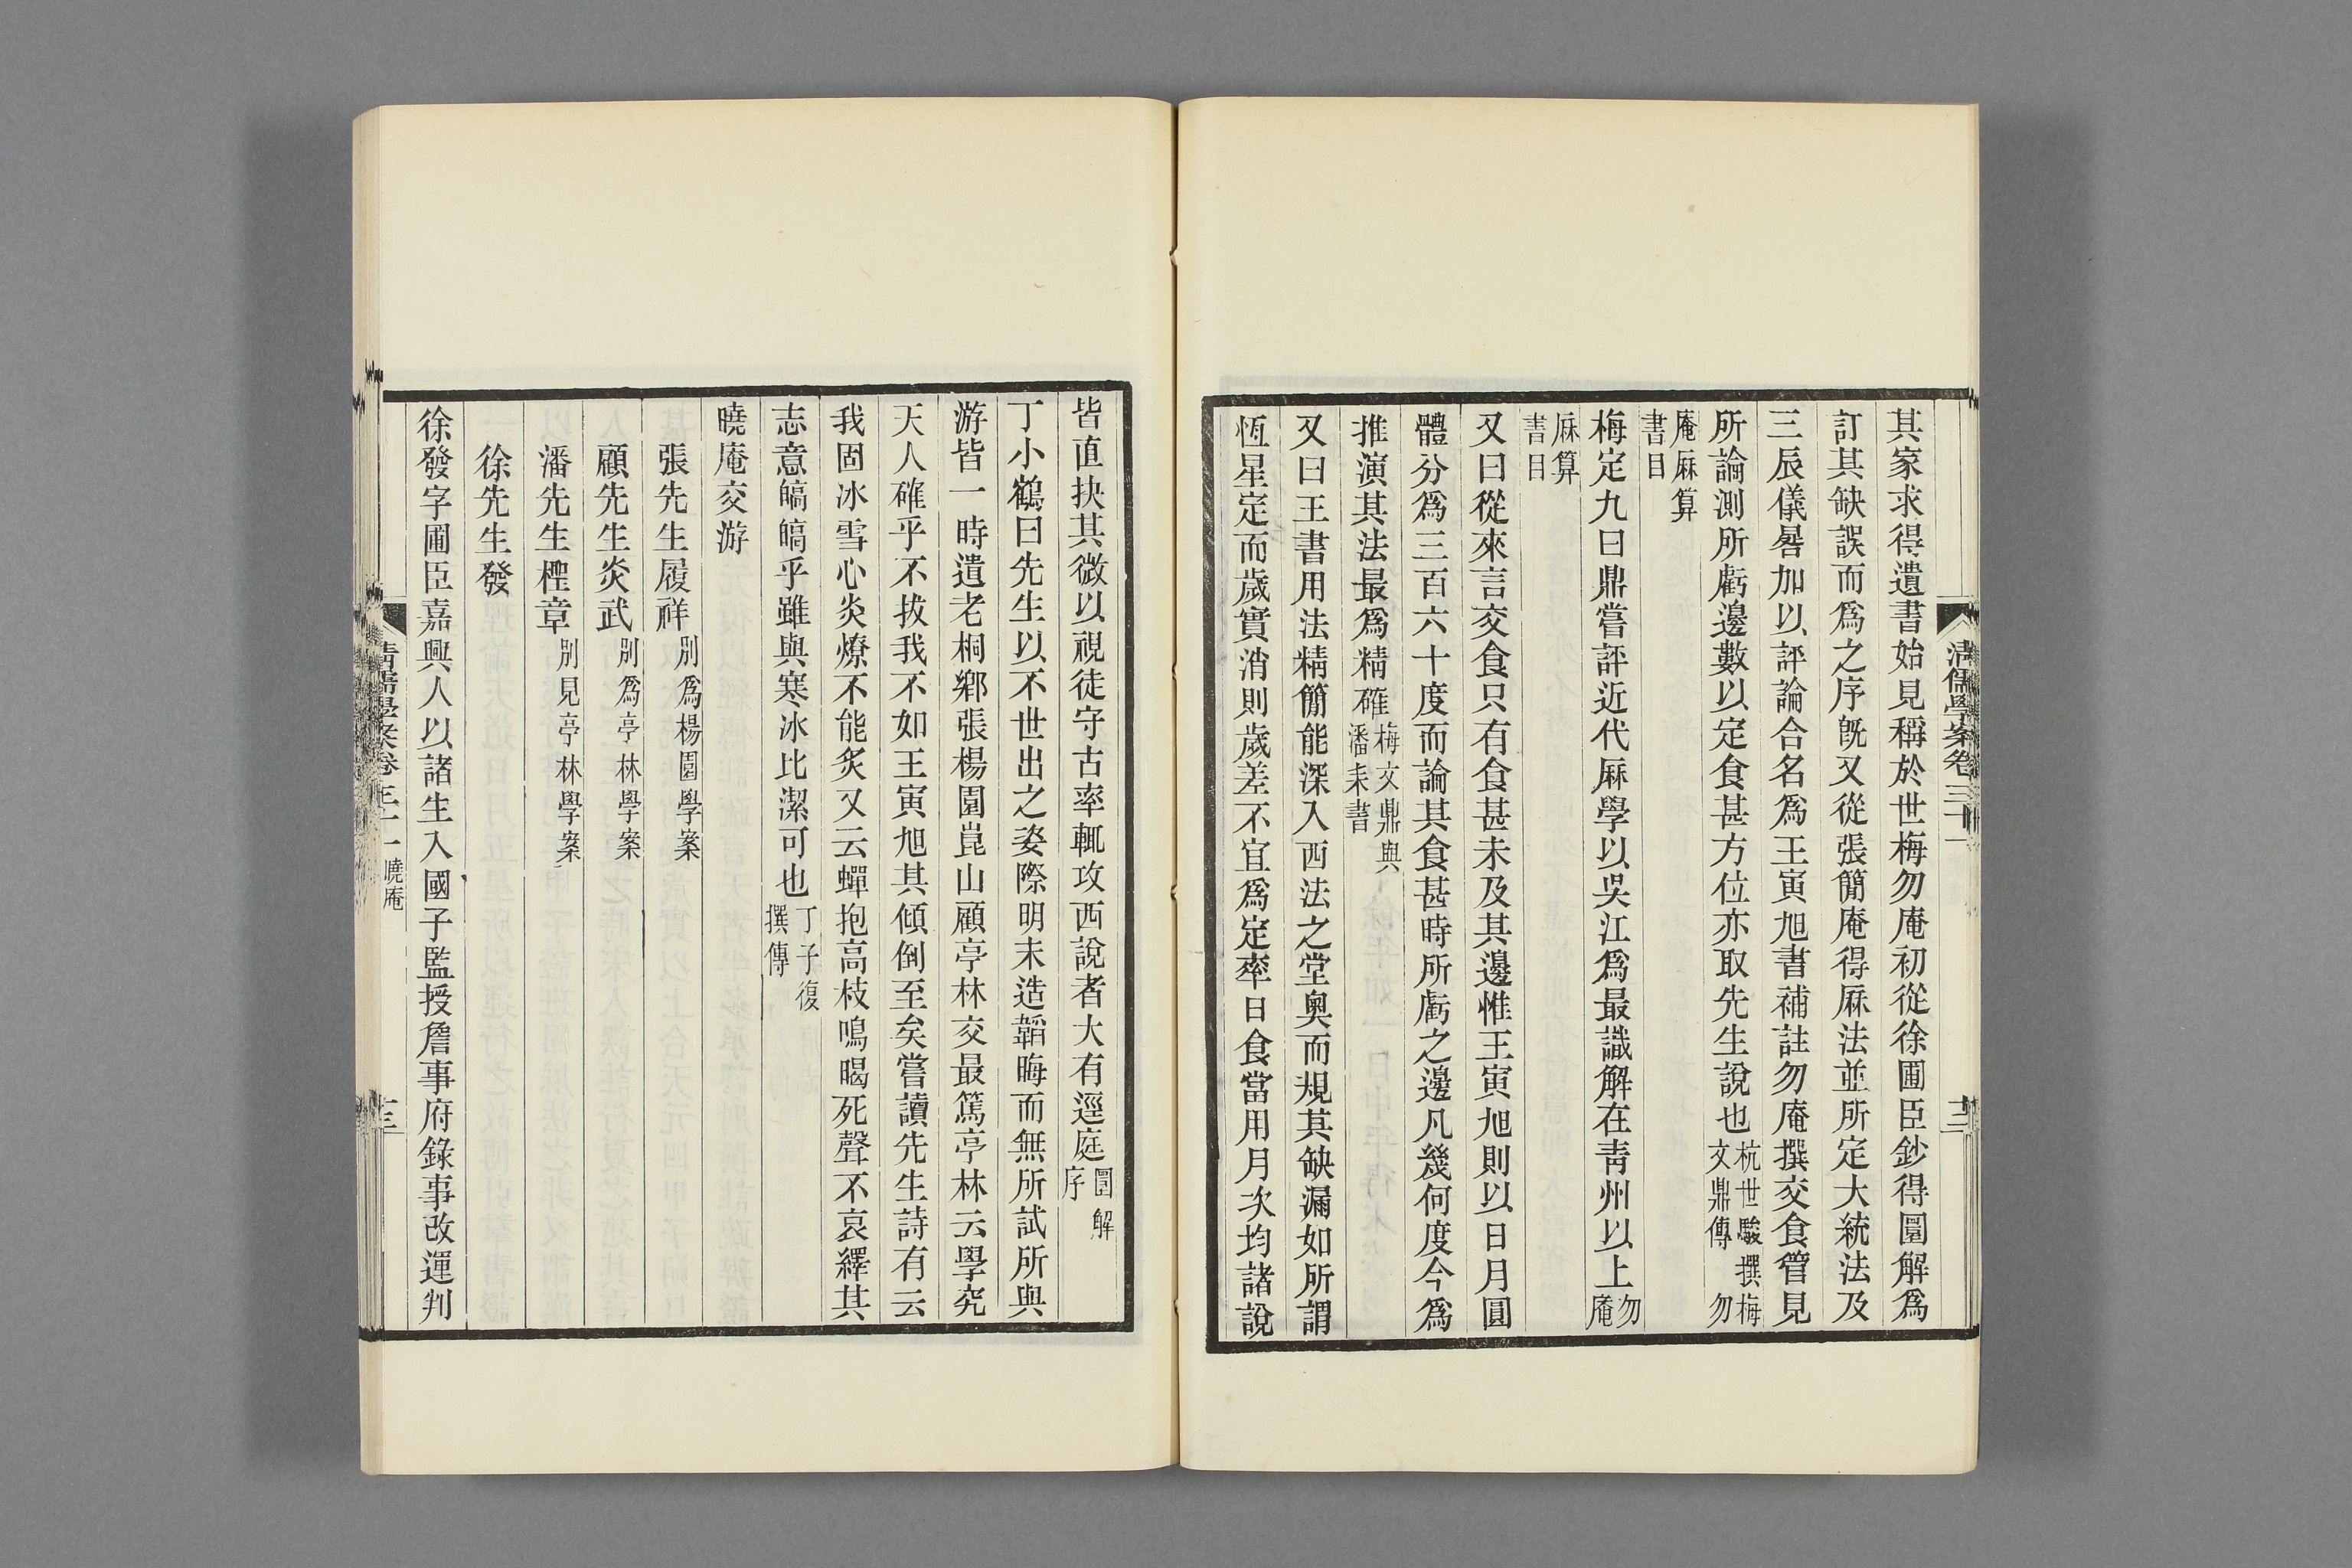 清儒學案卷三十一
十二
其家求得遺書始見稱於世梅勿庵初從徐圃臣鈔得圜解爲
訂其缺誤而爲之序旣又從張簡庵得厤法並所定大統法及
三辰儀晷加以評論合名爲王寅旭書補註勿庵撰交食管見
所論測所虧邊數以定食甚方位亦取先生說也杭世駿撰梅文鼎傳 勿
庵厤算書目
梅定九曰鼎嘗評近代厤學以吳江爲最識解在靑州以上勿庵
厤算書目
又曰從來言交食只有食甚未及其邊惟王寅旭則以日月圓
體分爲三百六十度而論其食甚時所虧之邊凡幾何度今爲
推演其法最爲精確梅文鼎與潘耒書
又曰王書用法精簡能深入西法之堂奧而規其缺漏如所謂
恆星定而歲實消則歲差不宜爲定率日食當用月次均諸說
皆直抉其微以視徒守古率輒攻西說者大有逕庭圜解序
丁小鶴曰先生以不世出之姿際明末造韜晦而無所試所與
游皆一時遺老桐鄕張楊園崑山顧亭林交最篤亭林云學究
天人確乎不拔我不如王寅旭其傾倒至矣嘗讀先生詩有云
我固冰雪心炎燎不能炙又云蟬抱高枝鳴暍死聲不哀繹其
志意皜皜乎雖與寒冰比潔可也丁子復撰傳
曉庵交游
張先生履祥別爲楊園學案
顧先生炎武別爲亭林學案
潘先生檉章別見亭林學案
徐先生發
徐發字圃臣嘉興人以諸生入國子監授詹事府錄事改運判
清儒學案卷三十一 曉庵
十三